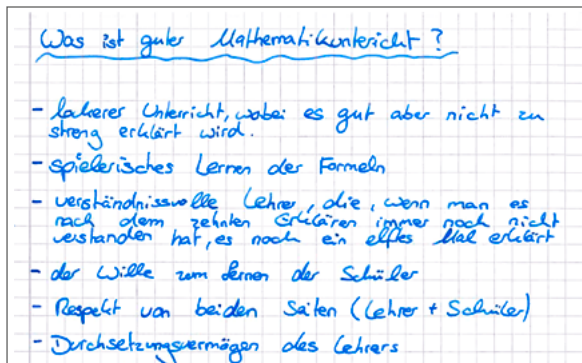 Was ist guter Mathematikunterricht?
- lockerer Unterricht, wobei es gut aber nicht zu
streng erklärt wird.
- spielerisches Lernen der Formeln
- verständnisvolle Lehrer, die, wenn man es
nach dem zehnten Erklären immer noch nicht
verstanden hat, es noch ein elftes Mal erklärt
- der Wille zum Lernen der Schüler
- Respekt von beiden Seiten (Lehrer + Schüler)
- Durchsetzungsvermögen des Lehrers